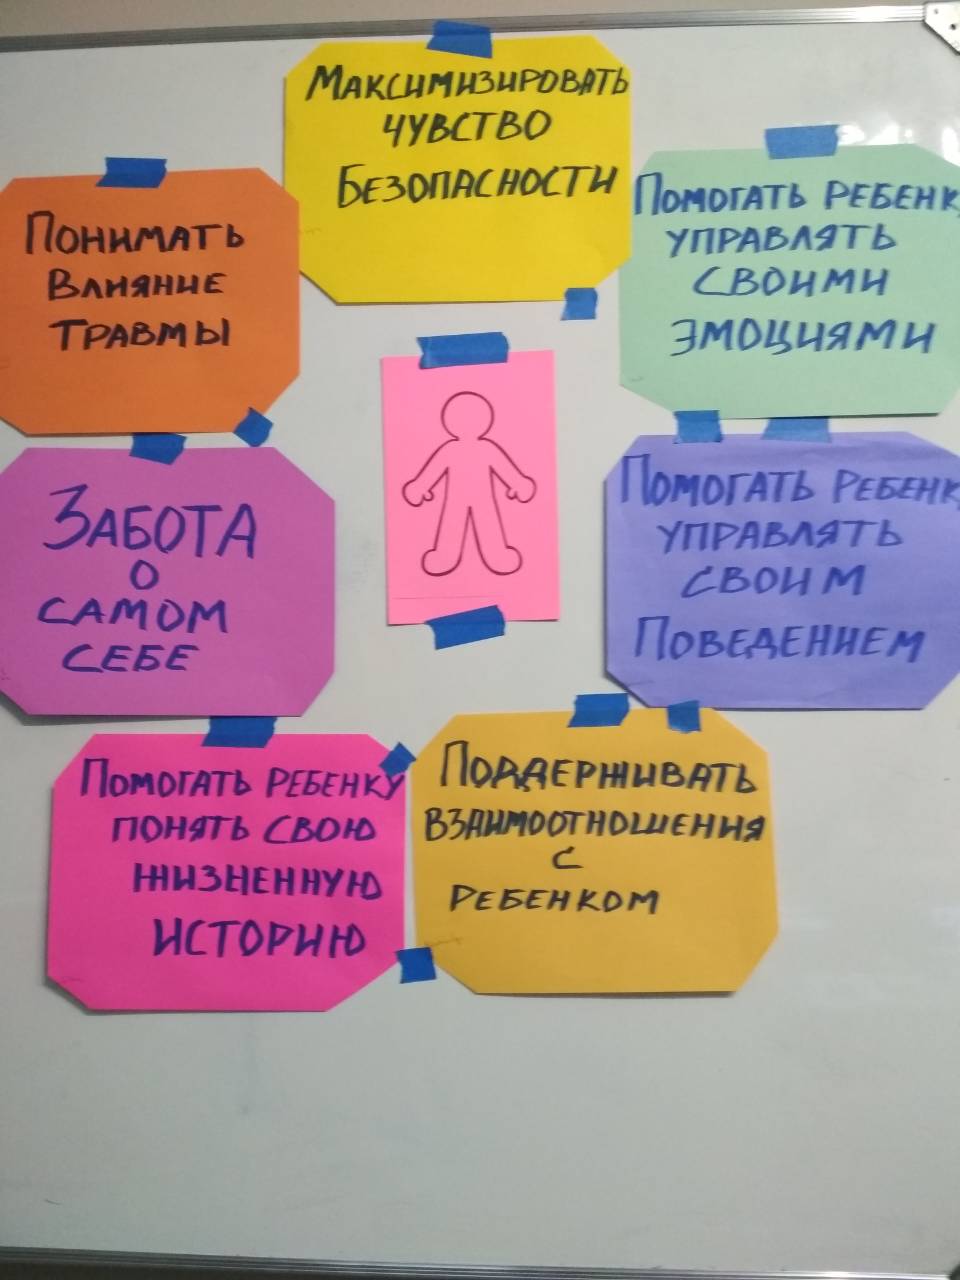 Максимизировать
чувство
Безопасности
Понимать
Влияние
травмы
Помогать ребенк
управлять
своими
эмоциями
Забота
о
самом
себе
Помогать ребенк
управлять
своим
Поведением
Помогать ребенку
понять свою
жизненную
историю
Поддерживать
взаимоотношения
с
ребенком